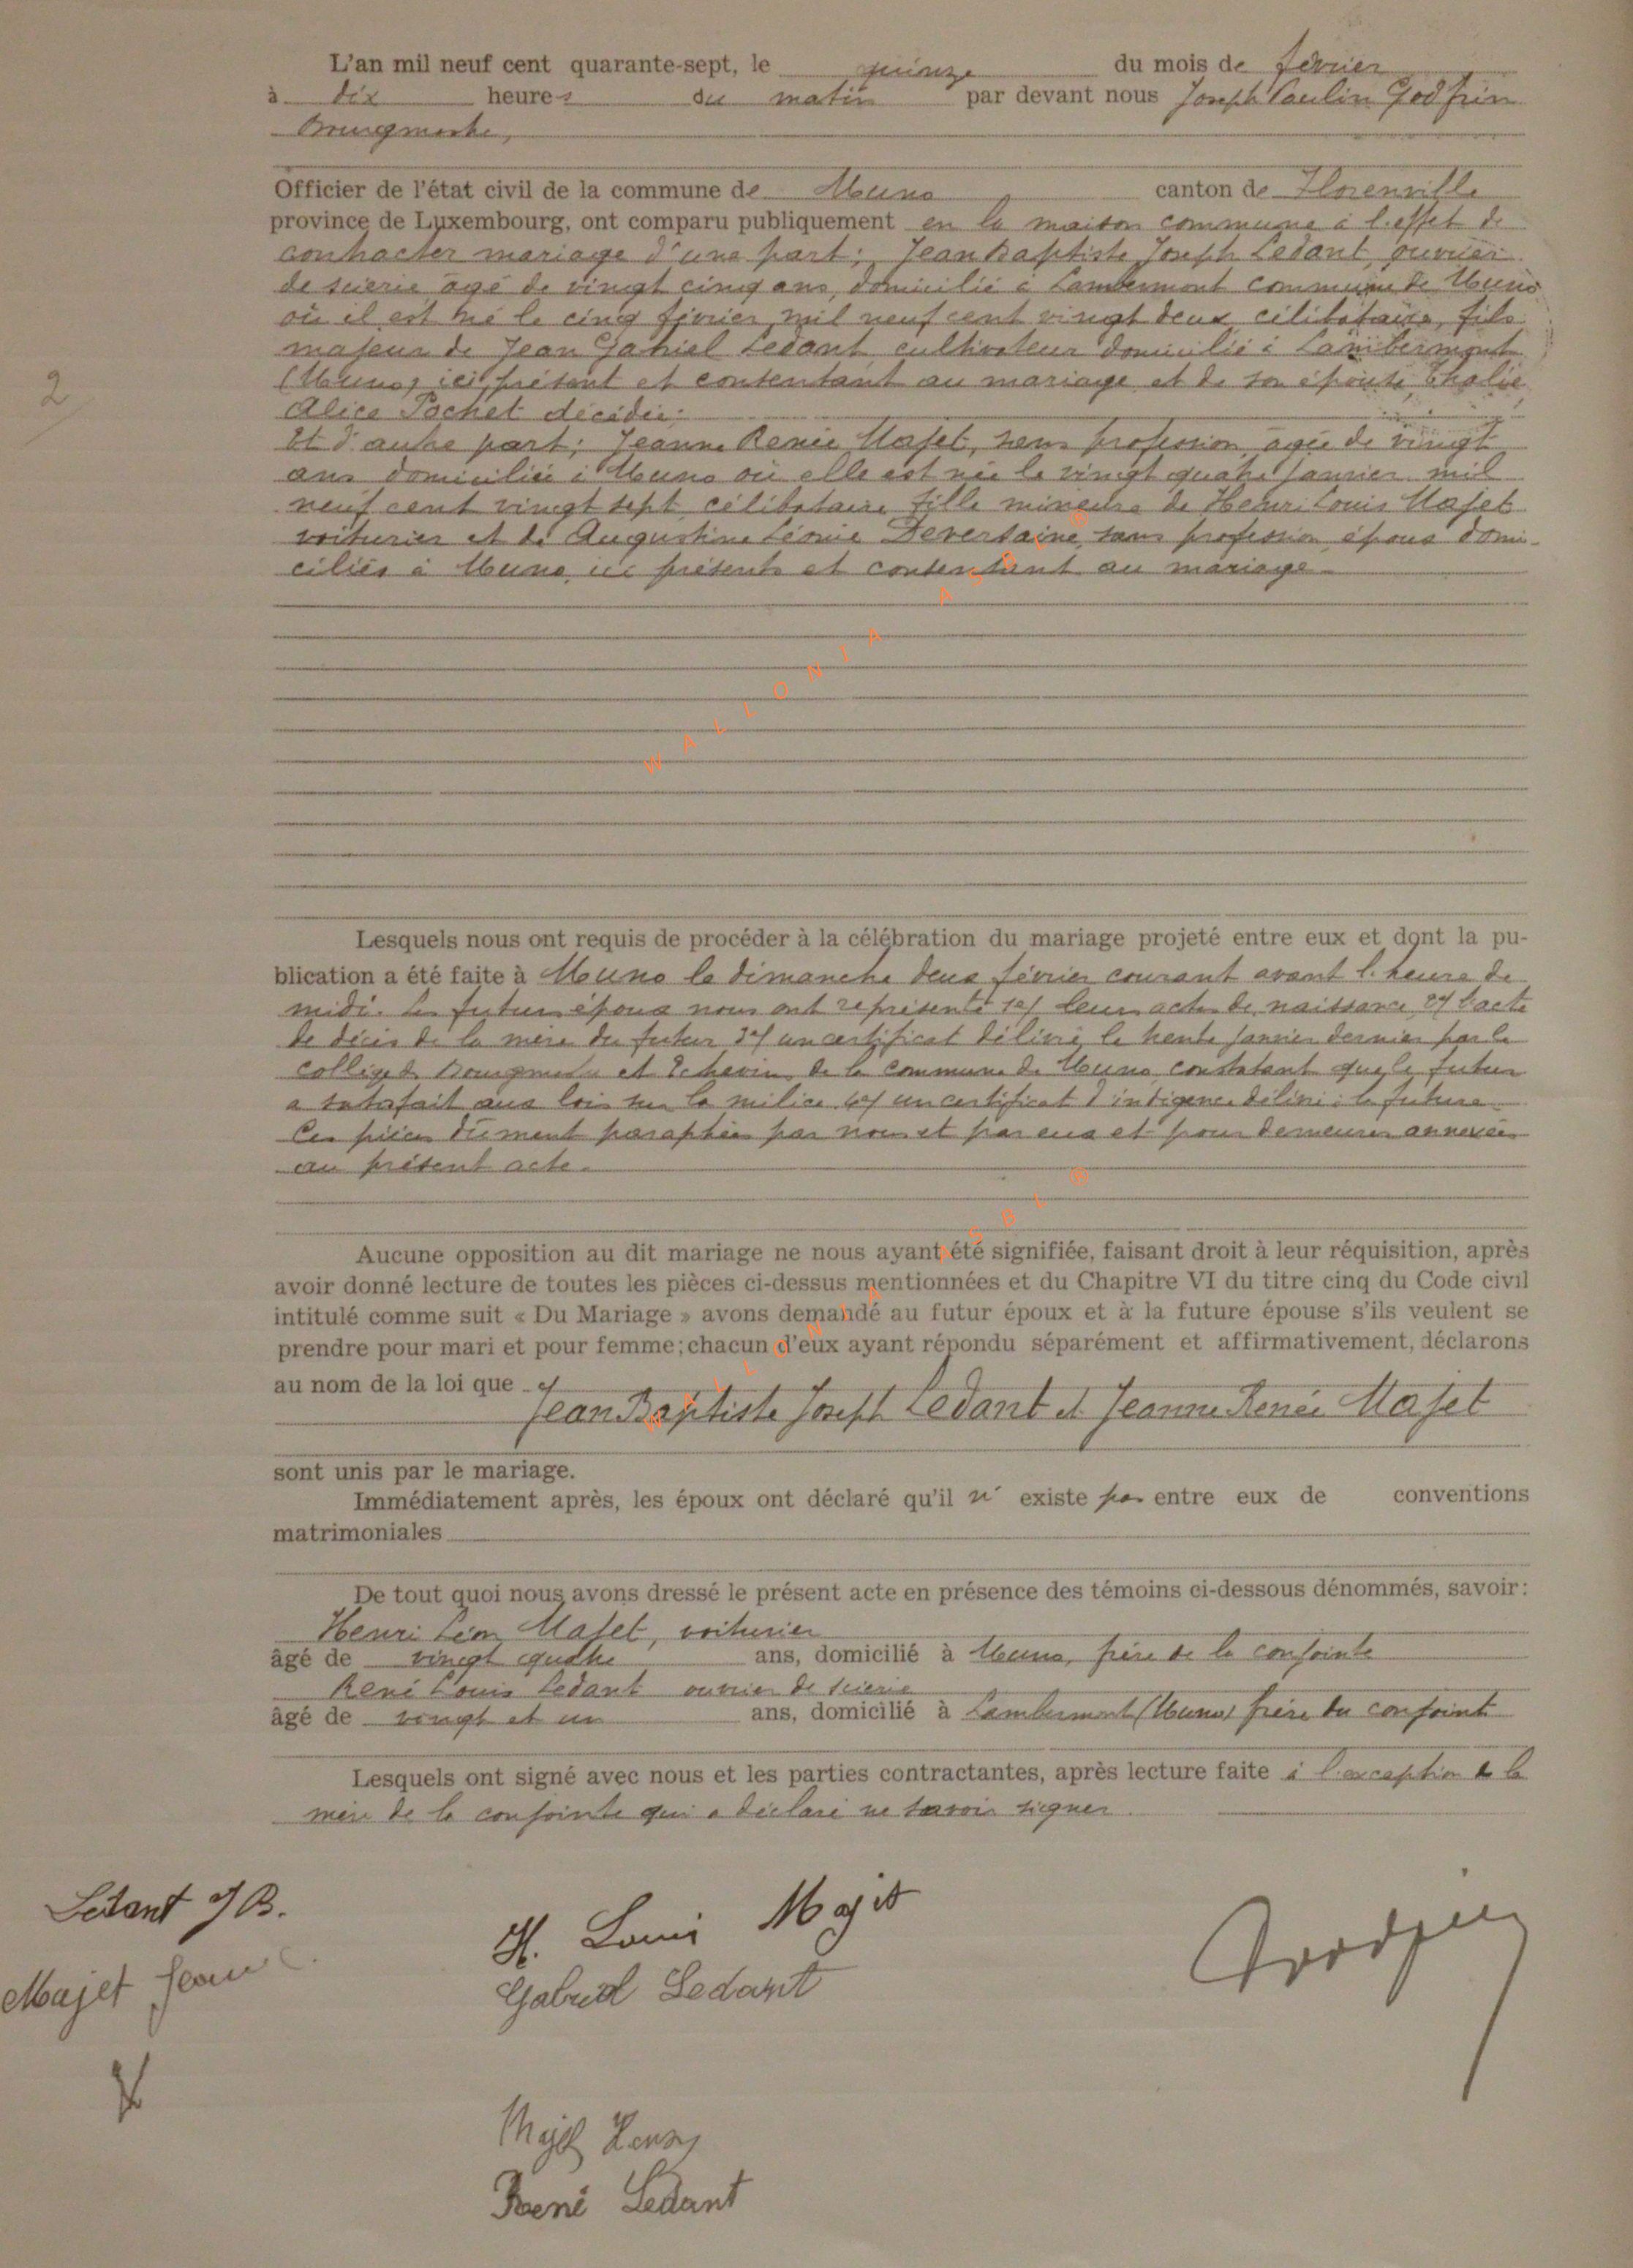 L'an mil neuf cent quarante-sept, le quinze du mois de février
à dix heures du matin par devant nous Joseph Paulin Godfrin
Bourgmestre,
Officier de l'état civil de la commune de Muno canton de Florenville
province de Luxembourg, ont comparu publiquement en la maison commune à l'effet de
contracter mariage d'une part; Jean Baptiste Joseph Ledant, ouvrier
de scierie âgé de vingt cinq ans, domicilié à Lambermont commune de Muno
où il est né le cinq février mil neuf cent vingt deux, célibataire, fils
majeur de Jean Gabriel Ledant cultivateur domicilié à Lambermont
(Muno) ici présent et consentant au mariage et de son épouse
Alice Pochet décédée.
2
Et d'autre part; Jeanne Renée Majet, sans profession, agée de vingt
ans domiciliée à Muno où elle est née le vingt quatre janvier mil
neuf cent vingt sept, célibataire fille mineure de Henri Louis Majet
voiturier et de Augustine Léonie Deversaine, sans profession, époux domi-
ciliés à Muno, ici présents et consentant au mariage.
WALLONIA ASBL ®
Lesquels nous ont requis de procéder à la célébration du mariage projeté entre eux et dont la pu-
blication a été faite à Muno le dimanche deux février courant avant l'heure de
midi. Les futurs époux nous ont représenté 1°/ leurs actes de naissance 2°/ l'acte
de décès de la mère du futur 3°/ un certificat délivré le trente janvier dernier par le
collège des Bourgmestre et Echevins de la commune de Muno constatant que le futur
a satisfait aux lois sur la milice 4°/ un certificat d'indigence délivré à la future
Ces pièces dûment paraphées par nous et par eux et pour demeurer annexées
au présent acte.
Aucune opposition au dit mariage ne nous ayant été signifiée, faisant droit à leur réquisition, après
avoir donné lecture de toutes les pièces ci-dessus mentionnées et du Chapitre VI du titre cinq du Code civil
intitulé comme suit « Du Mariage » avons demandé au futur époux et à la future épouse s'ils veulent se
prendre pour mari et pour femme; chacun d'eux ayant répondu séparément et affirmativement, déclarons
au nom de la loi que
Jean Baptiste Joseph Ledant et Jeanne Renée Majet
sont unis par le mariage.
Immédiatement après, les époux ont déclaré qu'il n' existe pas entre eux de conventions
matrimoniales
De tout quoi nous avons dressé le présent acte en présence des témoins ci-dessous dénommés, savoir:
Henri Léon Majet, voiturier
âgé de vingt quatre ans, domicilié à Muno, frère de la conjointe
René Louis Ledant ouvrier de scierie
âgé de vingt et un ans, domicilié à Lambermont (Muno) frère du conjoint
Lesquels ont signé avec nous et les parties contractantes, après lecture faite à l'exception de la
mère de la conjointe qui a déclaré ne savoir signer.
Ledant J B.
H. Louis Majet
Godfrin
Majet Jeanne
Gabriel Ledant
Majet Henri
René Ledant